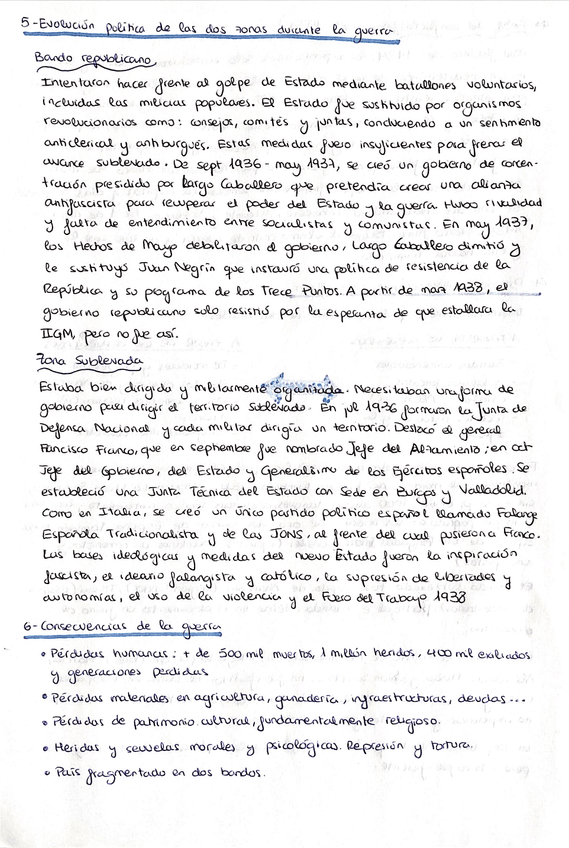 5-Evolución política de las dos zonas durante la guerra
Bando republicano
Intentaron hacer frente al golpe de Estado mediante batallones voluntarios,
incluidas las milicias populares. El Estado fue sustituido por organismos
revolucionarios como: consejos, comités y juntas, conduciendo a un sentimiento
anticlerical y antiburgués. Estas medidas fuero insuficientes para frenar el
avance sublevado. De sept 1936 - may 1937, se creó un gobierno de concen-
tración presidido por Largo Caballero que pretendía crear una alianza
antifascista para recuperar el poder del Estado y la guerra Hubo rivalidad
y falta de entendimiento entre socialistas y comunistas. En may 1937,
los Hechos de Mayo debilitaron al gobierno, Largo Caballero dimitió y
le sustituyó Juan Negrín que instauró una política de resistencia de la
República y su programa de los Trece Puntos. A partir de mar 1938, el
gobierno republicano solo resistió por la esperanza de que estallara la
IIGM, pero no fue así.
Zona Sublevada
Estaba bien dirigida y militarmente organizada. Necesitaban una forma de
gobierno para dirigir el territorio sublevado. En jul 1936 formaron la Junta de
Defensa Nacional y cada militar dirigía un territorio. Destacó el general
Francisco Franco, que en septiembre fue nombrado Jefe del Alzamiento; en oct
Jefe del Gobierno, del Estado y Generalísimo de los Ejércitos españoles. Se
estableció una Junta Técnica del Estado con Sede en Burgos y Valladolid.
Como en Italia, se creó un único partido político español llamado Falange
Española Tradicionalista y de las JONS, al frente del cual pusieron a Franco.
Las bases ideológicas y medidas del nuevo Estado fueron la inspiración
fascista, el ideario falangista y católico, la supresión de libertades y
autonomías, el uso de la violencia y el Fuero del Trabajo 1938
6-Consecuencias de la guerra
• Pérdidas humanas: + de 500 mil muertos, 1 millón heridos, 400 mil exiliados
y generaciones perdidas
• Pérdidas materiales en agricultura, ganadería, infraestructuras, deudas...
• Pérdidas de patrimonio cultural, fundamentalmente religioso.
• Heridas y secuelas morales y psicológicas. Represión y tortura.
• País fragmentado en dos bandos.